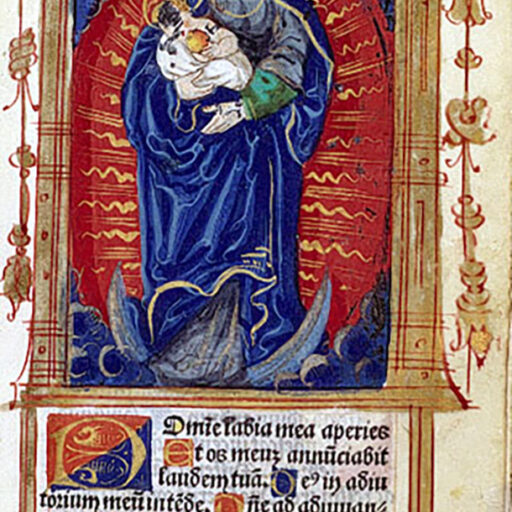 Dm̄e labia mea aperies
Et os meuȝ annūciabit
laudem tuā. De⁹ in adiu
torium meū intēde. Dn̄e ad adiuuan-